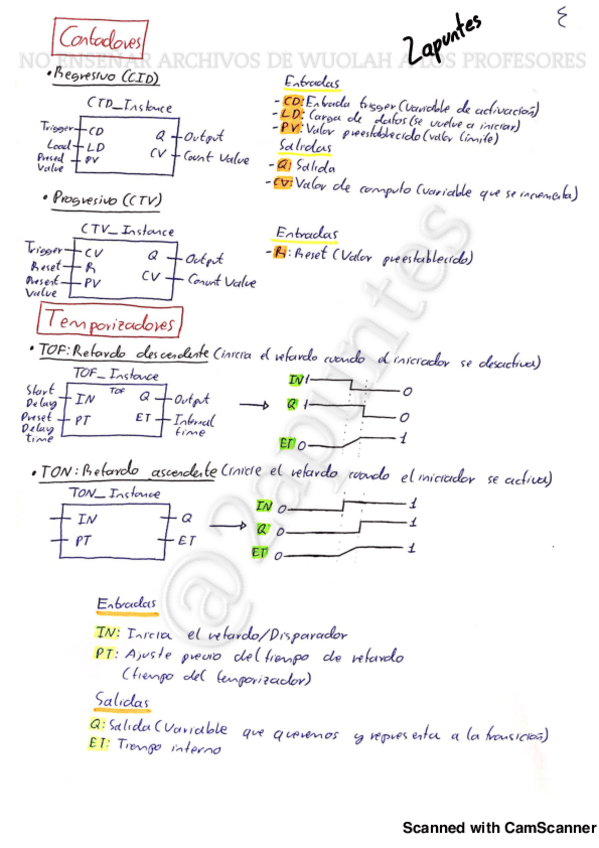 Contadores
2apuntes
NO ENSEÑAR ARCHIVOS DE WUOLAH A LOS PROFESORES
• Regresivo (CID)
CTD_Instance
Trigger CD Q Output
Load LD CV Count Value
Preset Value PV
Entradas
- CD: Entrada trigger (variable de activación)
- LD: Carga de datos (se vuelve a iniciar)
- PV: Valor preestablecido (valor límite)
Salidas
- Q: Salida
- CV: Valor de computo (variable que se incrementa)
• Progresivo (CTV)
CTV_Instance
Trigger CV Q Output
Reset R CV Conunt Value
Present Value PV
Entradas
- R: Reset (Valor preestablecido)
Temporizadores
• TOF: Retardo descendente (inicia el retardo cuando el iniciador se desactiva)
TOF_Instance
TOF
Start Delay IN Q Output
Preset Delay time PT ET Internal time
IN 1 0
Q 1 0
ET 0 1
• TON: Retardo ascendente (inicie el retardo cuando el iniciador se activa)
TON_Instance
IN Q
PT ET
IN 0 1
Q 0 1
ET 0 1
Entradas
IN: Inicia el retardo/Disparador
PT: Ajuste previo del tiempo de retardo
(tiempo del temporizador)
Salidas
Q: Salida (Variable que queremos y representa a la transición)
ET: Tiempo interno
@2apuntes
Scanned with CamScanner